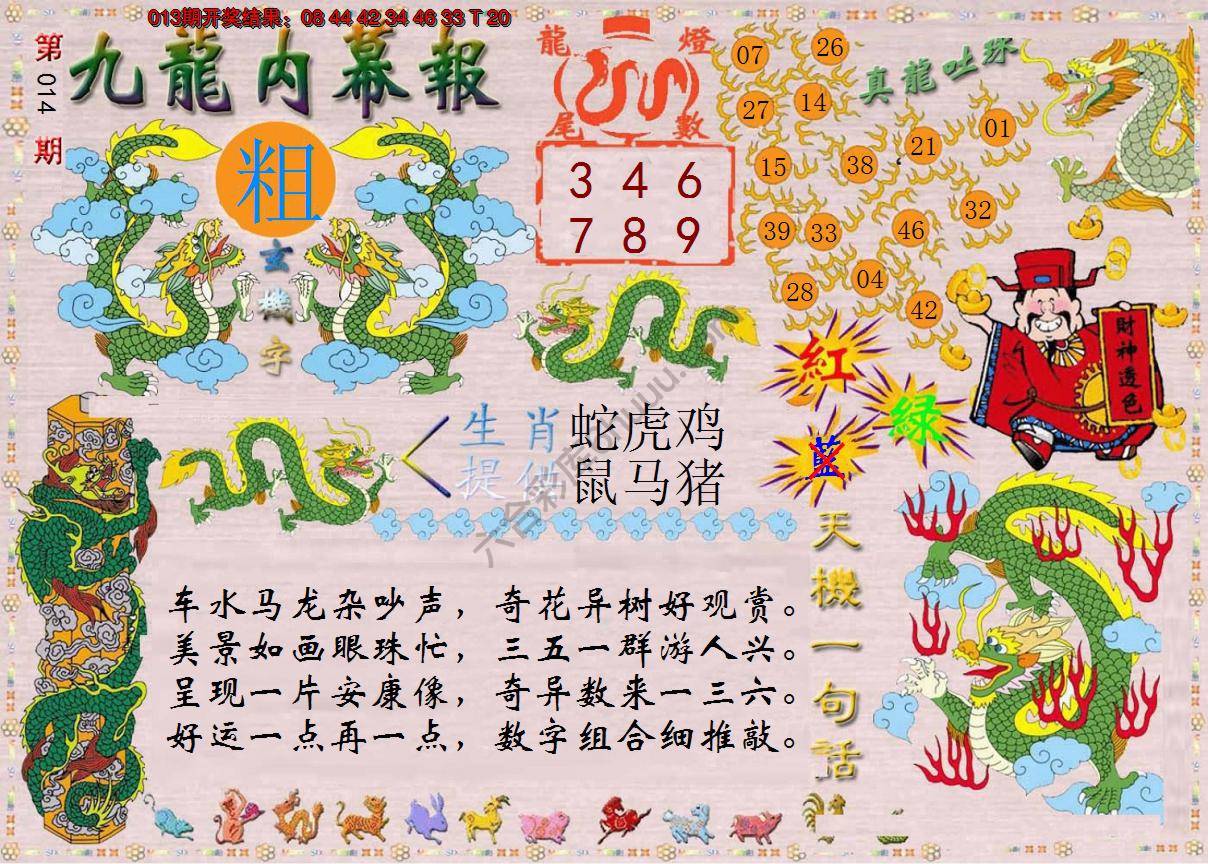 013期开奖结果：08 44 42 34 46 33 T 20
第014期
九龍内幕報
粗
玄機字
龍燈
尾數
3 4 6
7 8 9
真龍吐珠
07 26
27 14
01
21
15 38
32
39 33 46
28 04
42
財神透色
紅
綠
藍
生肖 蛇虎鸡
提供 鼠马猪
天機一句話
车水马龙杂吵声，奇花异树好观赏。
美景如画眼珠忙，三五一群游人兴。
呈现一片安康像，奇异数来一三六。
好运一点再一点，数字组合细推敲。